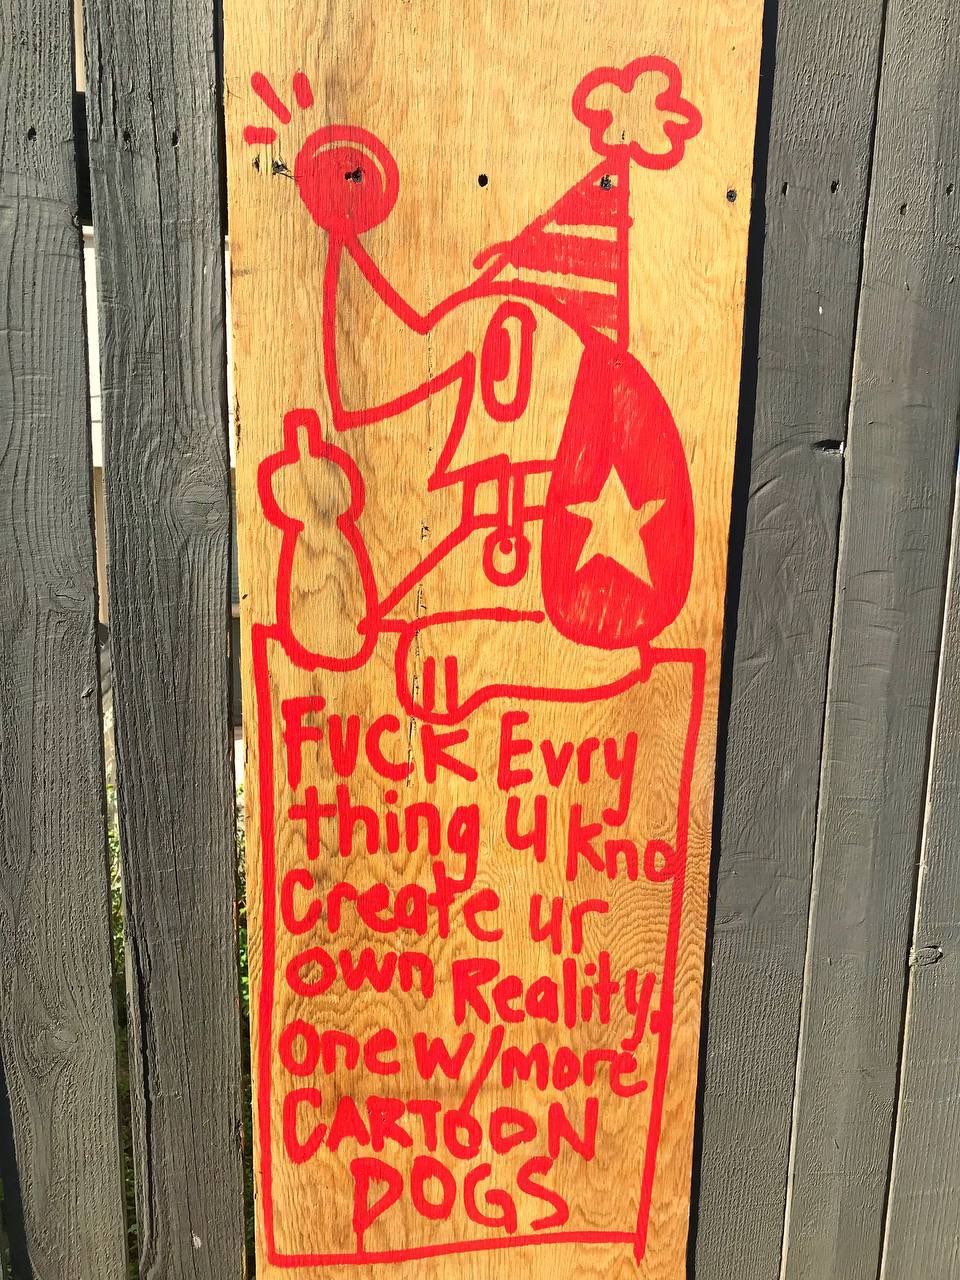 FUCK Evry
thing u kno
Create ur
own Reality.
one w/more
CARTOON
DOGS